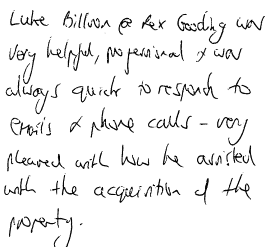 Luke Billson @ Rex Gooding was
very helpful, professional & was
always quick to respond to
emails & phone calls - very
pleased with how he assisted
with the acquisition of the
property.